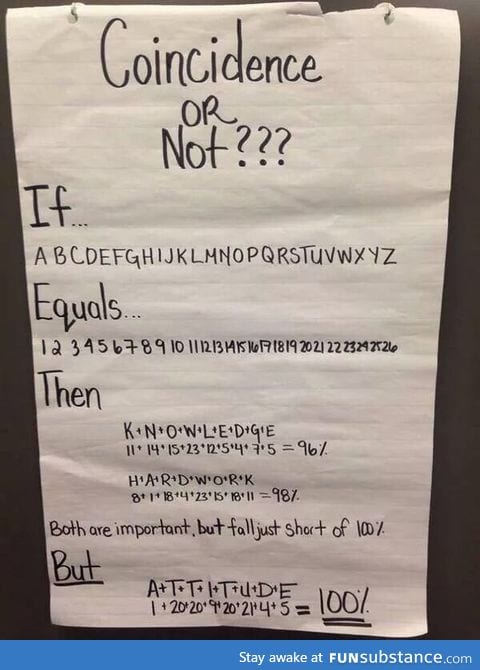 Coincidence
OR
Not???
If...
A B C D E F G H I J K L M N O P Q R S T U V W X Y Z
Equals...
1 2 3 4 5 6 7 8 9 10 11 12 13 14 15 16 17 18 19 20 21 22 23 24 25 26
Then
K+N+O+W+L+E+D+G+E
11+14+15+23+12+5+4+7+5=96%
H+A+R+D+W+O+R+K
8+1+18+4+23+15+18+11=98%
Both are important, but fall just short of 100%
But
A+T+T+I+T+U+D+E
1+20+20+9+20+21+4+5=100%
Stay awake at FUNsubstance.com